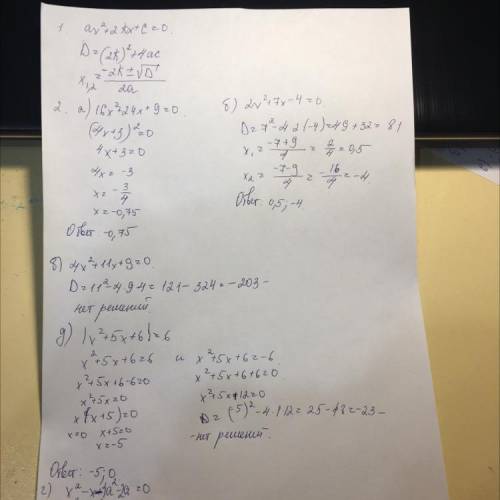 1 ax²+2kx+c=0.
D=(2k)²+4ac
x₁,₂=(-2k±√D)/2a
2. а) 16x²+24x+9=0
(4x+3)²=0
4x+3=0
4x=-3
x=-3/4
x=-0,75
Ответ: -0,75
б) 2x²+7x-4=0
D=7²-4·2(-4)=49+32=81
x₁=(-7+9)/4=2/4=0,5
x₂=(-7-9)/4=-16/4=-4.
Ответ: 0,5; -4
в) 4x²+11x+9=0.
D=11²-4·9·4=121-324=-203-
нет решений
д) |x²+5x+6|=6
x²+5x+6=6 и x²+5x+6=-6.
x²+5x+6-6=0 x²+5x+6+6=0
x²+5x=0 x²+5x+12=0
x(x+5)=0 D=(-5)²-4·1·12=25-48=-23-
x=0 x+5=0 -нет решений.
x=-5
Ответ: -5; 0
г) x²-x-4a²-2a=0